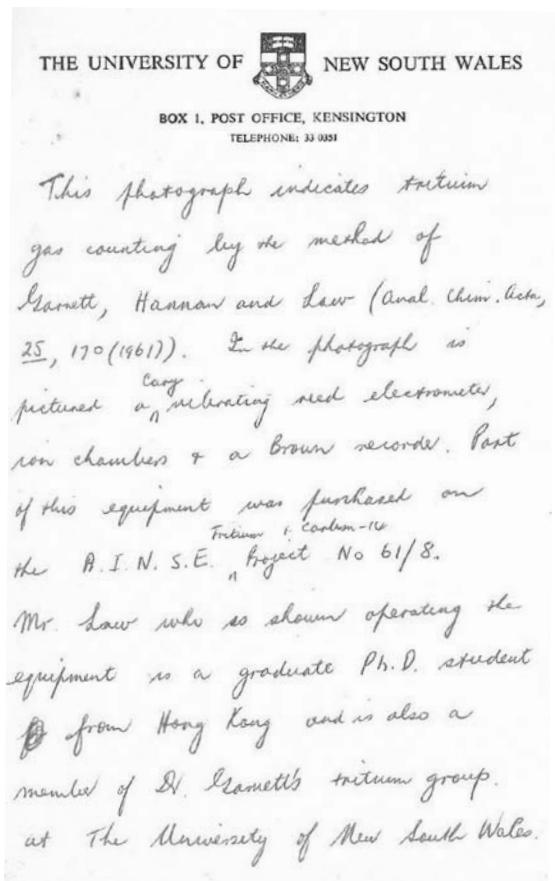 THE UNIVERSITY OF NEW SOUTH WALES
BOX 1, POST OFFICE, KENSINGTON
TELEPHONE: 33 0351
This photograph indicates tritium
gas counting by the method of
Garnett, Hannan and Law (Anal. Chim. Acta,
25, 170 (1961)). In the photograph is
pictured a Cary vibrating reed electrometer,
ion chambers & a Brown recorder. Part
of this equipment was purchased on
the A.I.N.S.E. Tritium & Carbon-14 Project No 61/8.
Mr. Law who is shown operating the
equipment is a graduate Ph.D. student
from Hong Kong and is also a
member of Dr. Garnett's tritium group.
at The University of New South Wales.